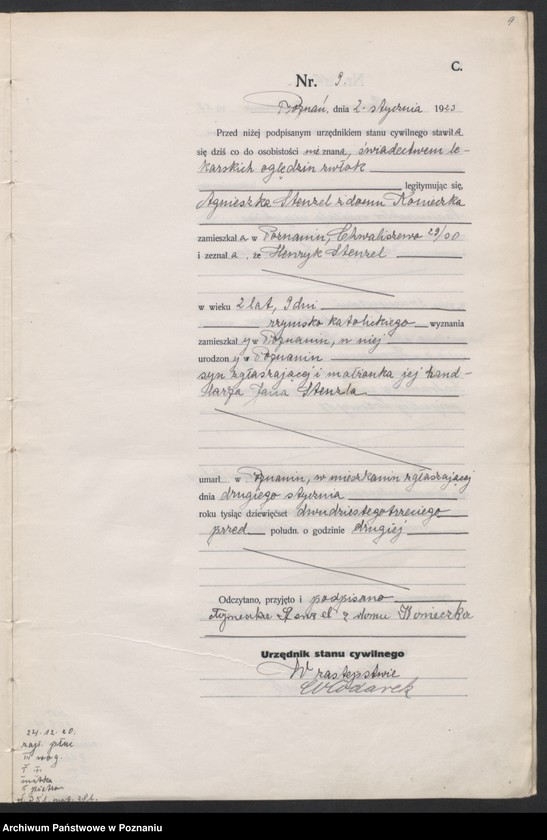 9
C.
Nr. 9.
Poznań, dnia 2. stycznia 1923
Przed niżej podpisanym urzędnikiem stanu cywilnego stawiła
się dziś co do osobistości nieznana, świadectwem le-
karskich oględzin zwłok
legitymując się,
Agnieszka Stenzel z domu Konieczka
zamieszkała w Poznaniu, Chwaliszewo 29/30
i zeznała, że Henryk Stenzel
w wieku 2 lat, 9 dni
rzymsko katolickiego wyznania
zamieszkały w Poznaniu, u niej
urodzony w Poznaniu
syn zgłaszającej i małżonka jej hand-
larza Jana Stenzla
umarł w Poznaniu, w mieszkaniu zgłaszającej
dnia drugiego stycznia
roku tysiąc dziewięćset dwudziestego trzeciego
przed połudn. o godzinie drugiej
Odczytano, przyjęto i podpisano
z domu Konieczka
Urzędnik stanu cywilnego
W zastępstwie
Włodarek
24.12.20.
Archiwum Państwowe w Poznaniu